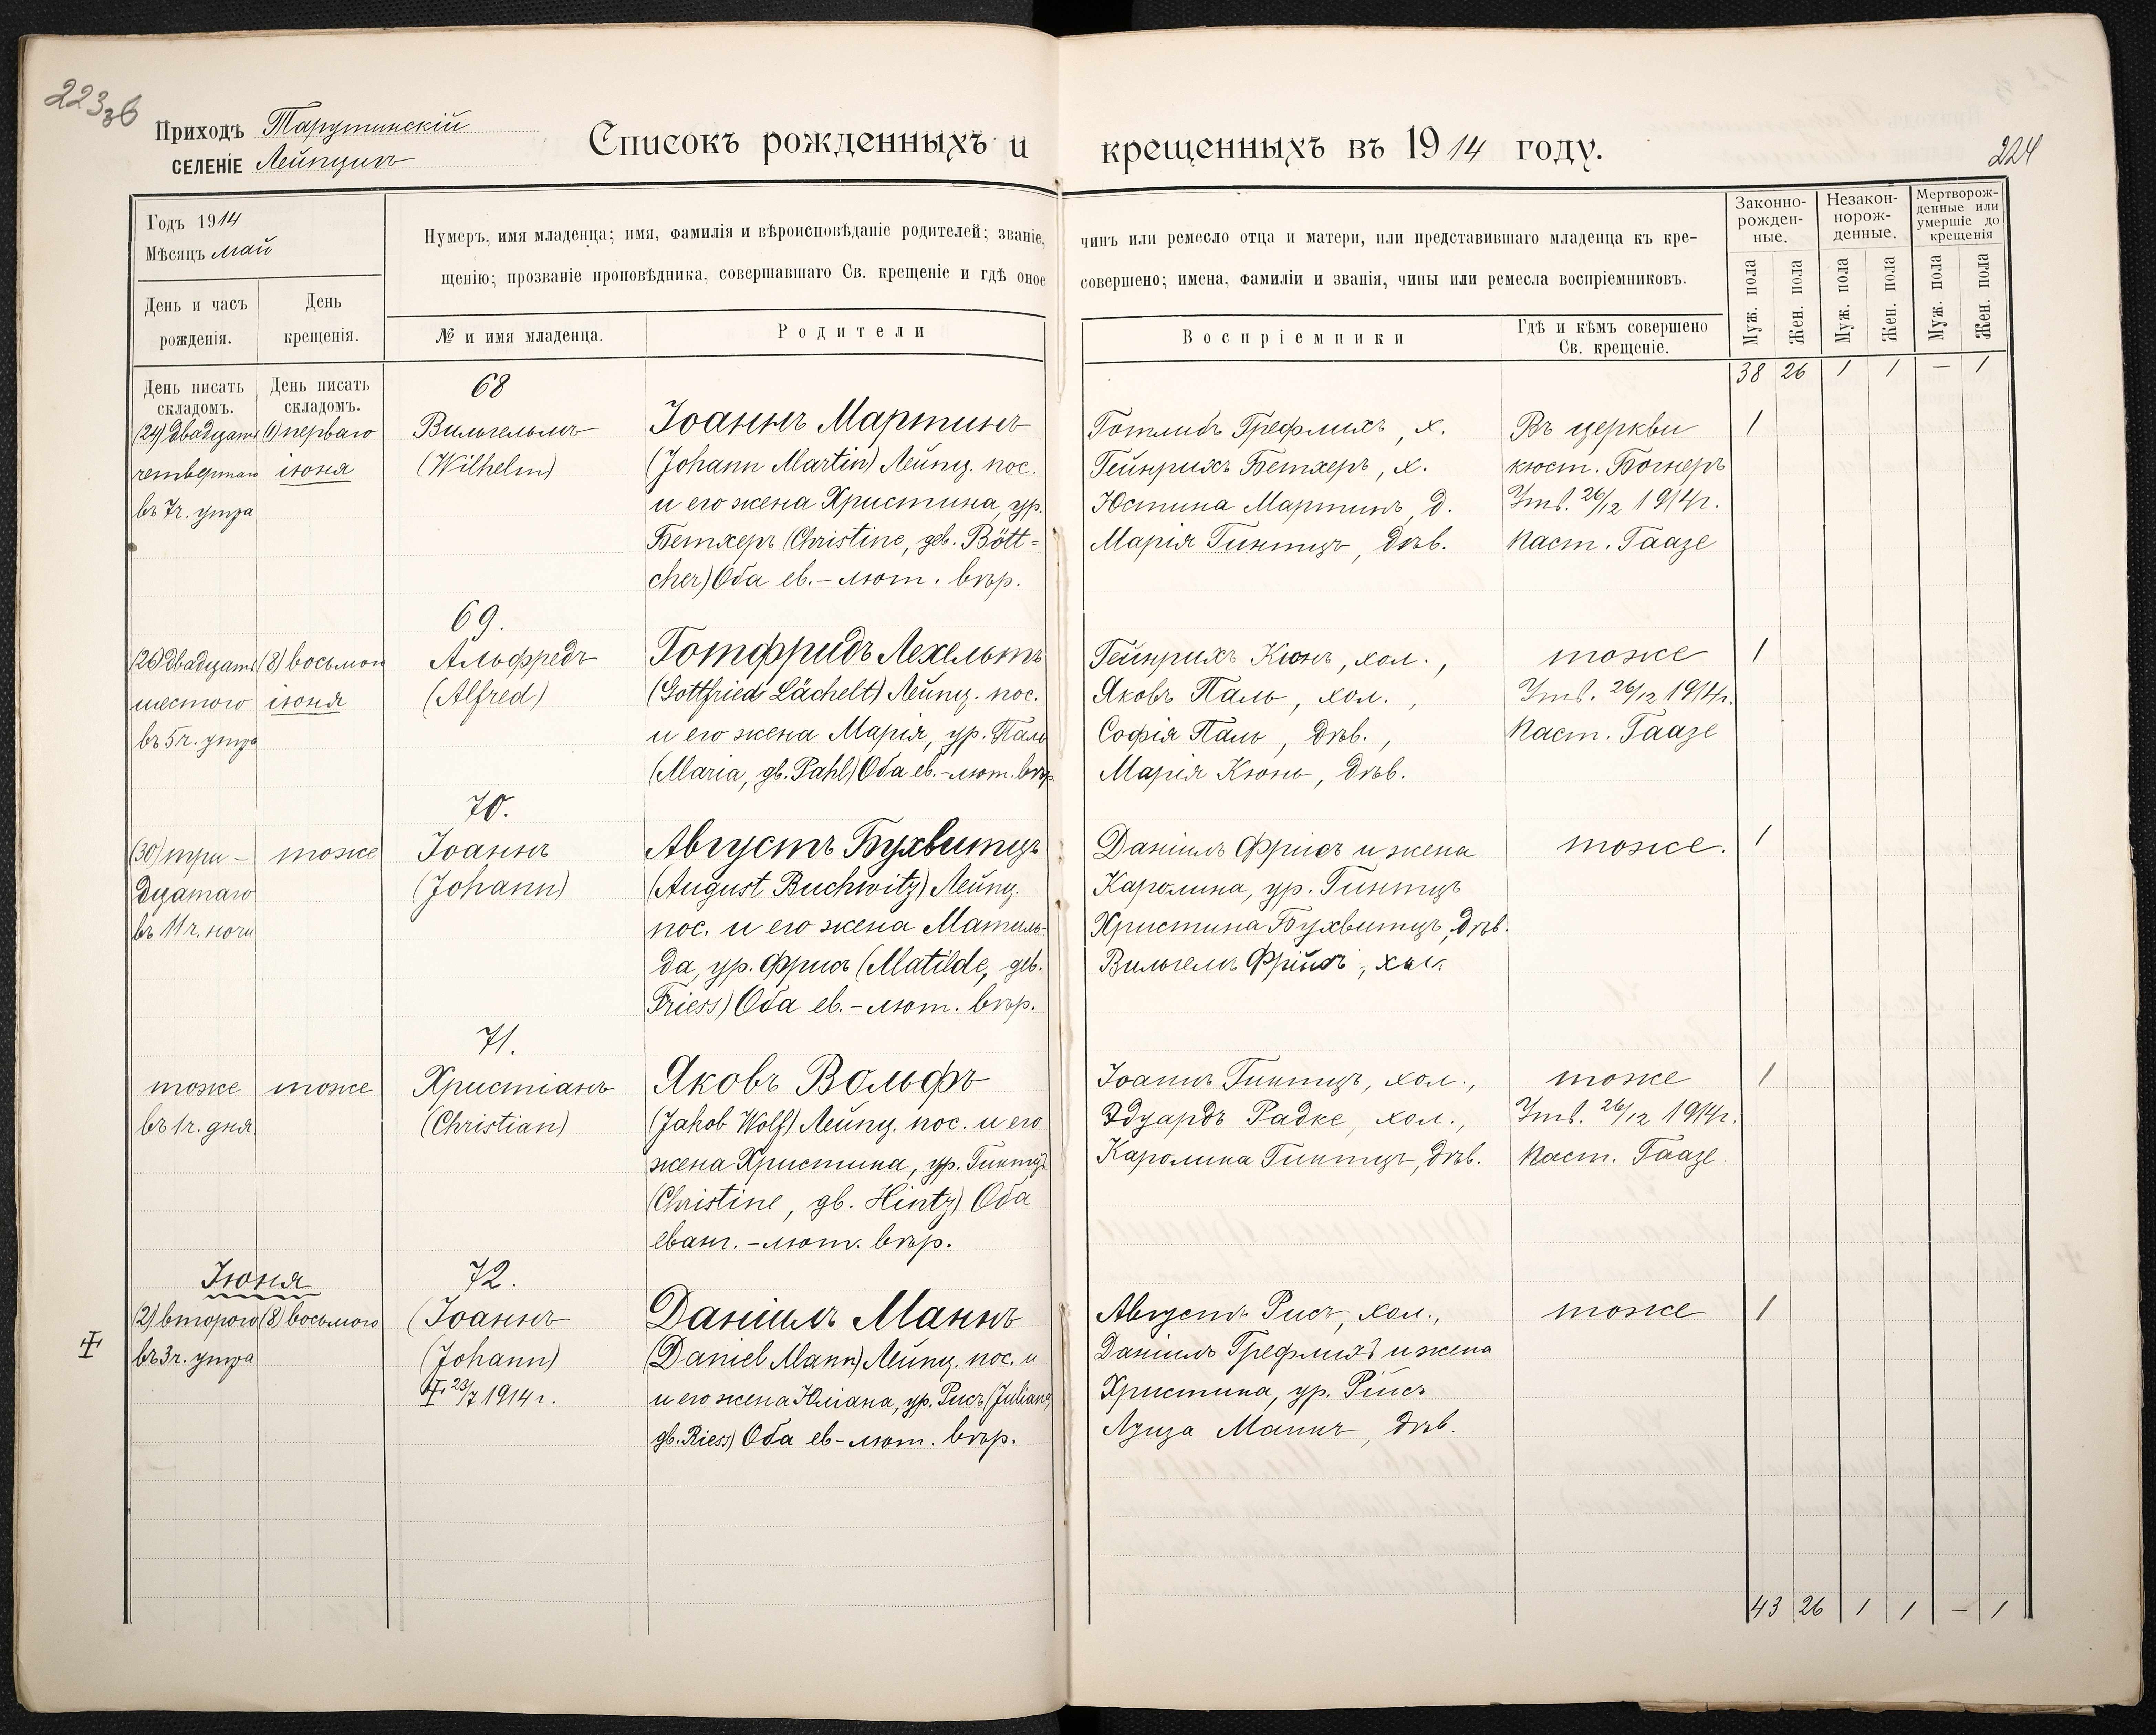 223 зб
Приходъ Тарутинскій
селеніе Лейпцигъ
Списокъ рожденныхъ и крещенныхъ въ 1914 году.
224
Годъ 1914
Мѣсяцъ май
Нумеръ, имя младенца; имя, фамилія и вѣроисповѣданіе родителей; званіе, чинъ или ремесло отца и матери, или представившаго младенца къ кре-
щенію; прозваніе проповѣдника, совершавшаго Св. крещеніе и гдѣ оное совершено; имена, фамиліи и званія, чины или ремесла воспріемниковъ.
День и часъ рожденія.
День крещенія.
№ и имя младенца.
Родители
Воспріемники
Гдѣ и кѣмъ совершено
Св. крещеніе.
Законно-
рожден-
ные.
Незакон-
норож-
денные.
Мертворож-
денные или
умершіе до
крещенія
Муж. пола
Жен. пола
Муж. пола
Жен. пола
Муж. пола
Жен. пола
38 26 1 1 — 1
День писать
складомъ.
День писать
складомъ.
(24) двадцать
четвертаго
въ 7 ч. утра
(1) перваго
іюня
68
Вильгельмъ
(Wilhelm)
Іоаннъ Мартинъ
(Johann Martin) Лейпц. пос.
и его жена Христина, ур.
Бетхеръ (Christine, geb. Bött=
cher) Оба ев.-лют. вѣр.
Готлибъ Грефлихъ, х.
Гейнрихъ Бетхеръ, х.
Юстина Мартинъ, д.
Марія Гинтцъ, дѣв.
Въ церкви
кюст. Богнеръ
Утв. 26/12 1914 г.
Паст. Гаазе
1
(26) двадцать
шестого
въ 5 ч. утра
(8) восьмого
іюня
69.
Альфредъ
(Alfred)
Готфридъ Лехельтъ
(Gottfried Lächelt) Лейпц. пос.
и его жена Марія, ур. Паль
(Maria, gb. Pahl) Оба ев.-лют. вѣр.
Гейнрихъ Кюнъ, хол.,
Яковъ Паль, хол.,
Софія Паль, дѣв.,
Марія Кюнъ, дѣв.
тоже
Утв. 26/12 1914 г.
Паст. Гаазе
1
(30) три-
дцатаго
въ 11 ч. ночи
тоже
70.
Іоаннъ
(Johann)
Августъ Бухвитцъ
(August Buchwitz) Лейпц.
пос. и его жена Матиль-
да, ур. Фрисъ (Matilde, geb.
Friess) Оба ев.-лют. вѣр.
Даніилъ Фрисъ и жена
Каролина, ур. Гинтцъ
Христина Бухвитцъ, дѣв.
тоже.
1
тоже
въ 1 ч. дня
тоже
71.
Христіанъ
(Christian)
Яковъ Вольфъ
(Jakob Wolf) Лейпц. пос. и его
жена Христина, ур. Гинтцъ
(Christine, gb. Hintz) Оба
еванг.-лют. вѣр.
Іоаннъ Гинтцъ, хол.,
Эдуардъ Радке, хол.,
Каролина Гинтцъ, дѣв.
тоже
Утв. 26/12 1914 г.
Паст. Гаазе.
1
Іюня
(2) второго
въ 3 ч. утра
(8) восьмого
72.
(Іоаннъ
(Johann)
23/7 1914 г.
Даніилъ Маннъ
(Daniel Mann) Лейпц. пос. и
и его жена Юліана, ур. Рисъ (Juliana,
gb. Riess) Оба ев-лют. вѣр.
Августъ Рисъ, хол.,
Даніилъ Грефлихъ и жена
Христина, ур. Рисъ
Луиза Маннъ, дѣв.
тоже
1
43 26 1 1 — 1